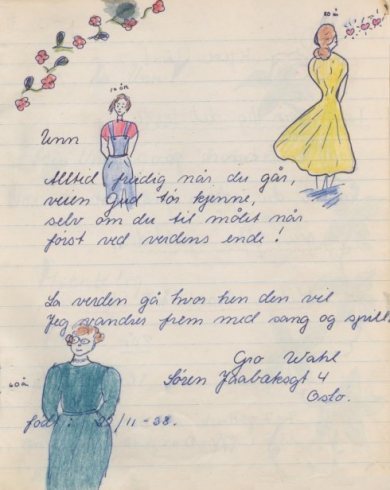 18 år
10 år
Unn
Alltid freidig når du går,
veien Gud tør kjenne,
selv om du til målet når
først ved verdens ende!
La verden gå hvor hen den vil
Jeg vandrer frem med sang og spill.
Gro Wahl
Søren Jaabæksgt 4
Oslo.
60 år
født: /11-38.